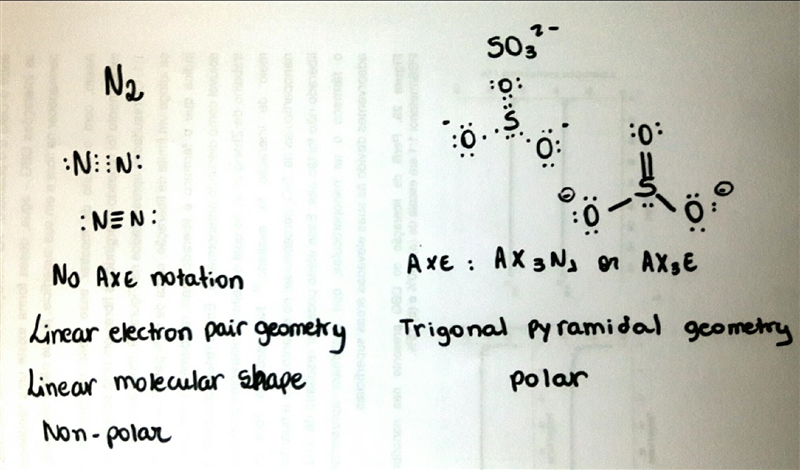 N2
:N⋮⋮N:
:N≡N:
No AXE notation
Linear electron pair geometry
Linear molecular shape
Non-polar
SO3 2-
:O:
S
- :O: :O: -
:O:
S
⊖ :O: :O: ⊖
AXE : AX3N1 or AX3E
Trigonal pyramidal geometry
polar